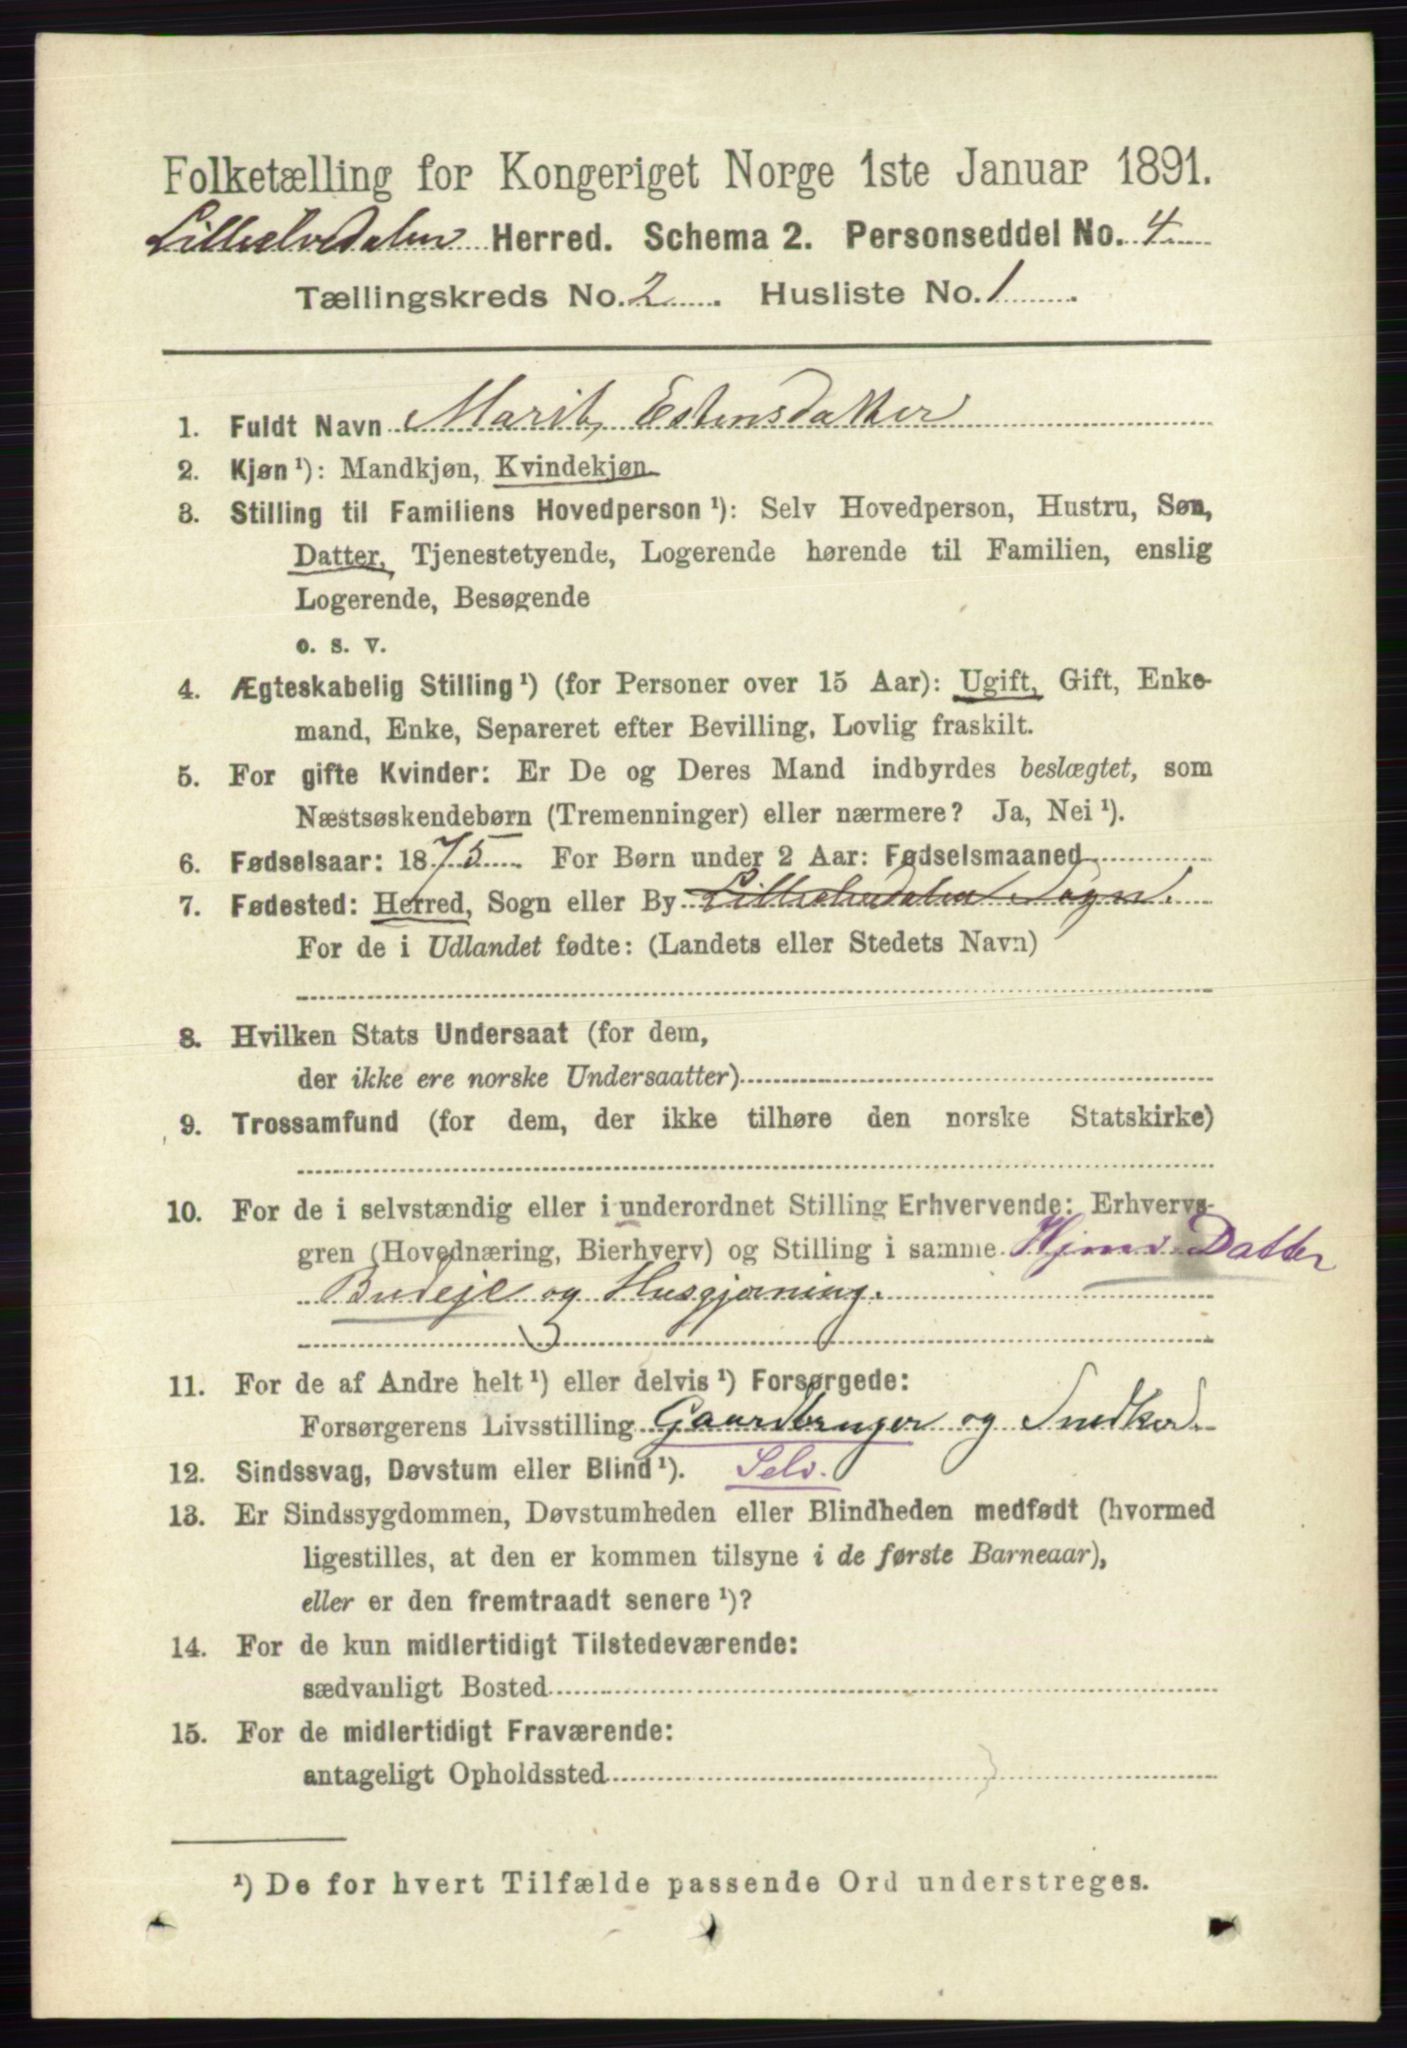 Folketælling for Kongeriget Norge 1ste Januar 1891.
Lilleelvedalen Herred. Schema 2. Personseddel No. 4
Tællingskreds No. 2. Husliste No. 1.
1. Fuldt Navn Marit, Estensdatter
2. Kjøn ¹): Mandkjøn, Kvindekjøn
3. Stilling til Familiens Hovedperson ¹): Selv Hovedperson, Hustru, Søn,
Datter, Tjenestetyende, Logerende hørende til Familien, enslig
Logerende, Besøgende
o. s. v.
4. Ægteskabelig Stilling ¹) (for Personer over 15 Aar): Ugift, Gift, Enke-
mand, Enke, Separeret efter Bevilling, Lovlig fraskilt.
5. For gifte Kvinder: Er De og Deres Mand indbyrdes beslægtet, som
Næstsøskendebørn (Tremenninger) eller nærmere? Ja, Nei ¹).
6. Fødselsaar: 1875. For Børn under 2 Aar: Fødselsmaaned
7. Fødested: Herred, Sogn eller By Lilleelvedalen Sogn.
For de i Udlandet fødte: (Landets eller Stedets Navn)
8. Hvilken Stats Undersaat (for dem,
der ikke ere norske Undersaatter)
9. Trossamfund (for dem, der ikke tilhøre den norske Statskirke)
10. For de i selvstændig eller i underordnet Stilling Erhvervende: Erhvervs-
gren (Hovednæring, Bierhverv) og Stilling i samme Hjmv. Datter
Budeje og Husgjerning.
11. For de af Andre helt ¹) eller delvis ¹) Forsørgede:
Forsørgerens Livsstilling Gaardbruger og Snedker.
12. Sindssvag, Døvstum eller Blind ¹). Selv.
13. Er Sindssygdommen, Døvstumheden eller Blindheden medfødt (hvormed
ligestilles, at den er kommen tilsyne i de første Barneaar),
eller er den fremtraadt senere ¹)?
14. For de kun midlertidigt Tilstedeværende:
sædvanligt Bosted
15. For de midlertidigt Fraværende:
antageligt Opholdssted
¹) De for hvert Tilfælde passende Ord understreges.